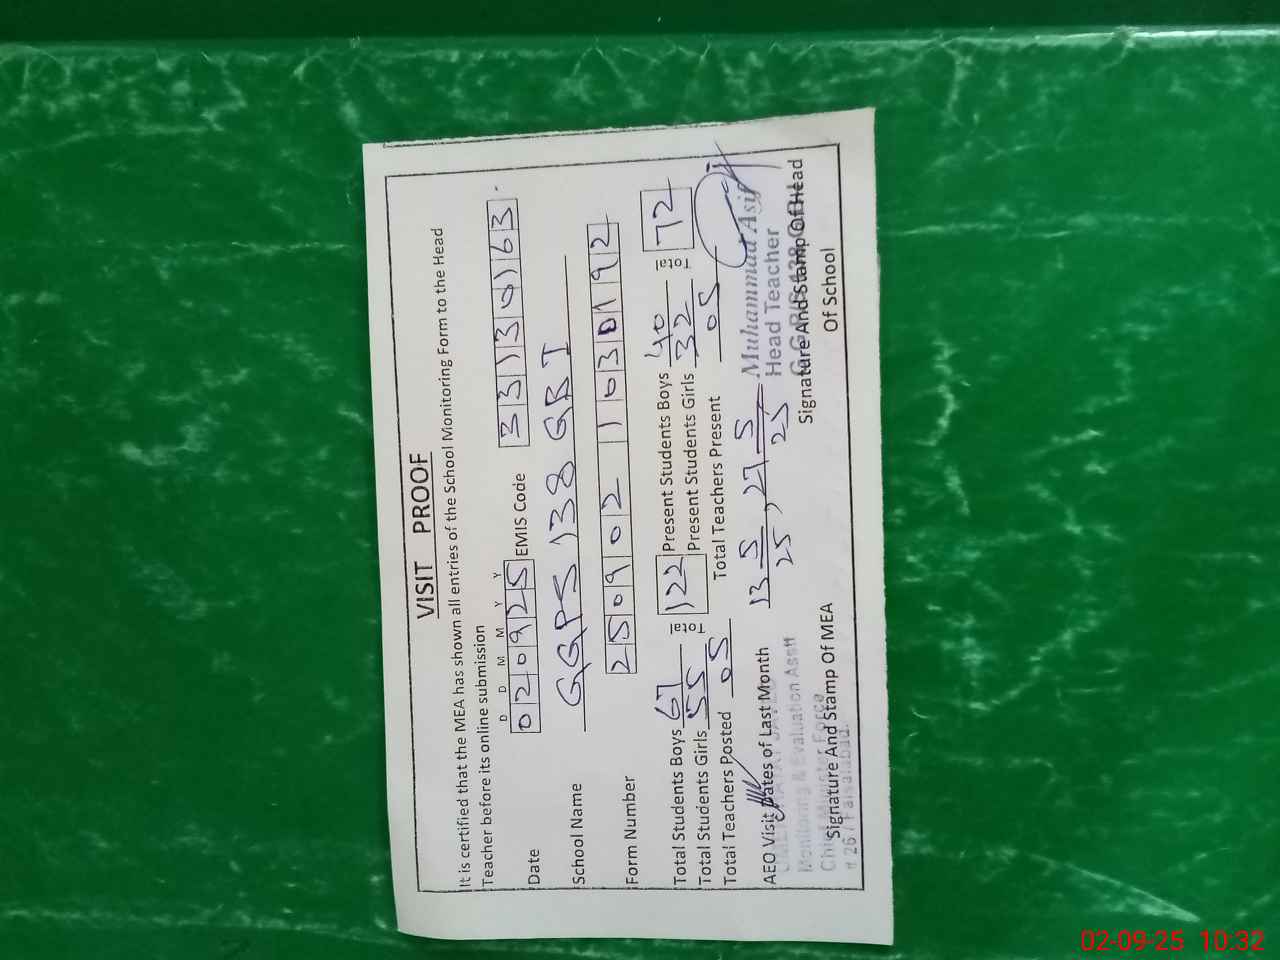 VISIT PROOF
It is certified that the MEA has shown all entries of the School Monitoring Form to the Head
Teacher before its online submission
D D M M Y Y
Date 020925 EMIS Code 33130163
School Name GGPS 138 GB I
Form Number 250902 11030192
Total Students Boys 67 Total 122 Present Students Boys 40 Total 72
Total Students Girls 55 Present Students Girls 32
Total Teachers Posted 05 Total Teachers Present 05
AEO Visit Dates of Last Month 13 5 25, 27 5 25
Muhammad Asif
Head Teacher
Monitoring & Evaluation Asstt
Chief Minister Force
# 26 / Faisalabad.
Signature And Stamp Of MEA
Signature And Stamp Of Head
Of School
02-09-25 10:32